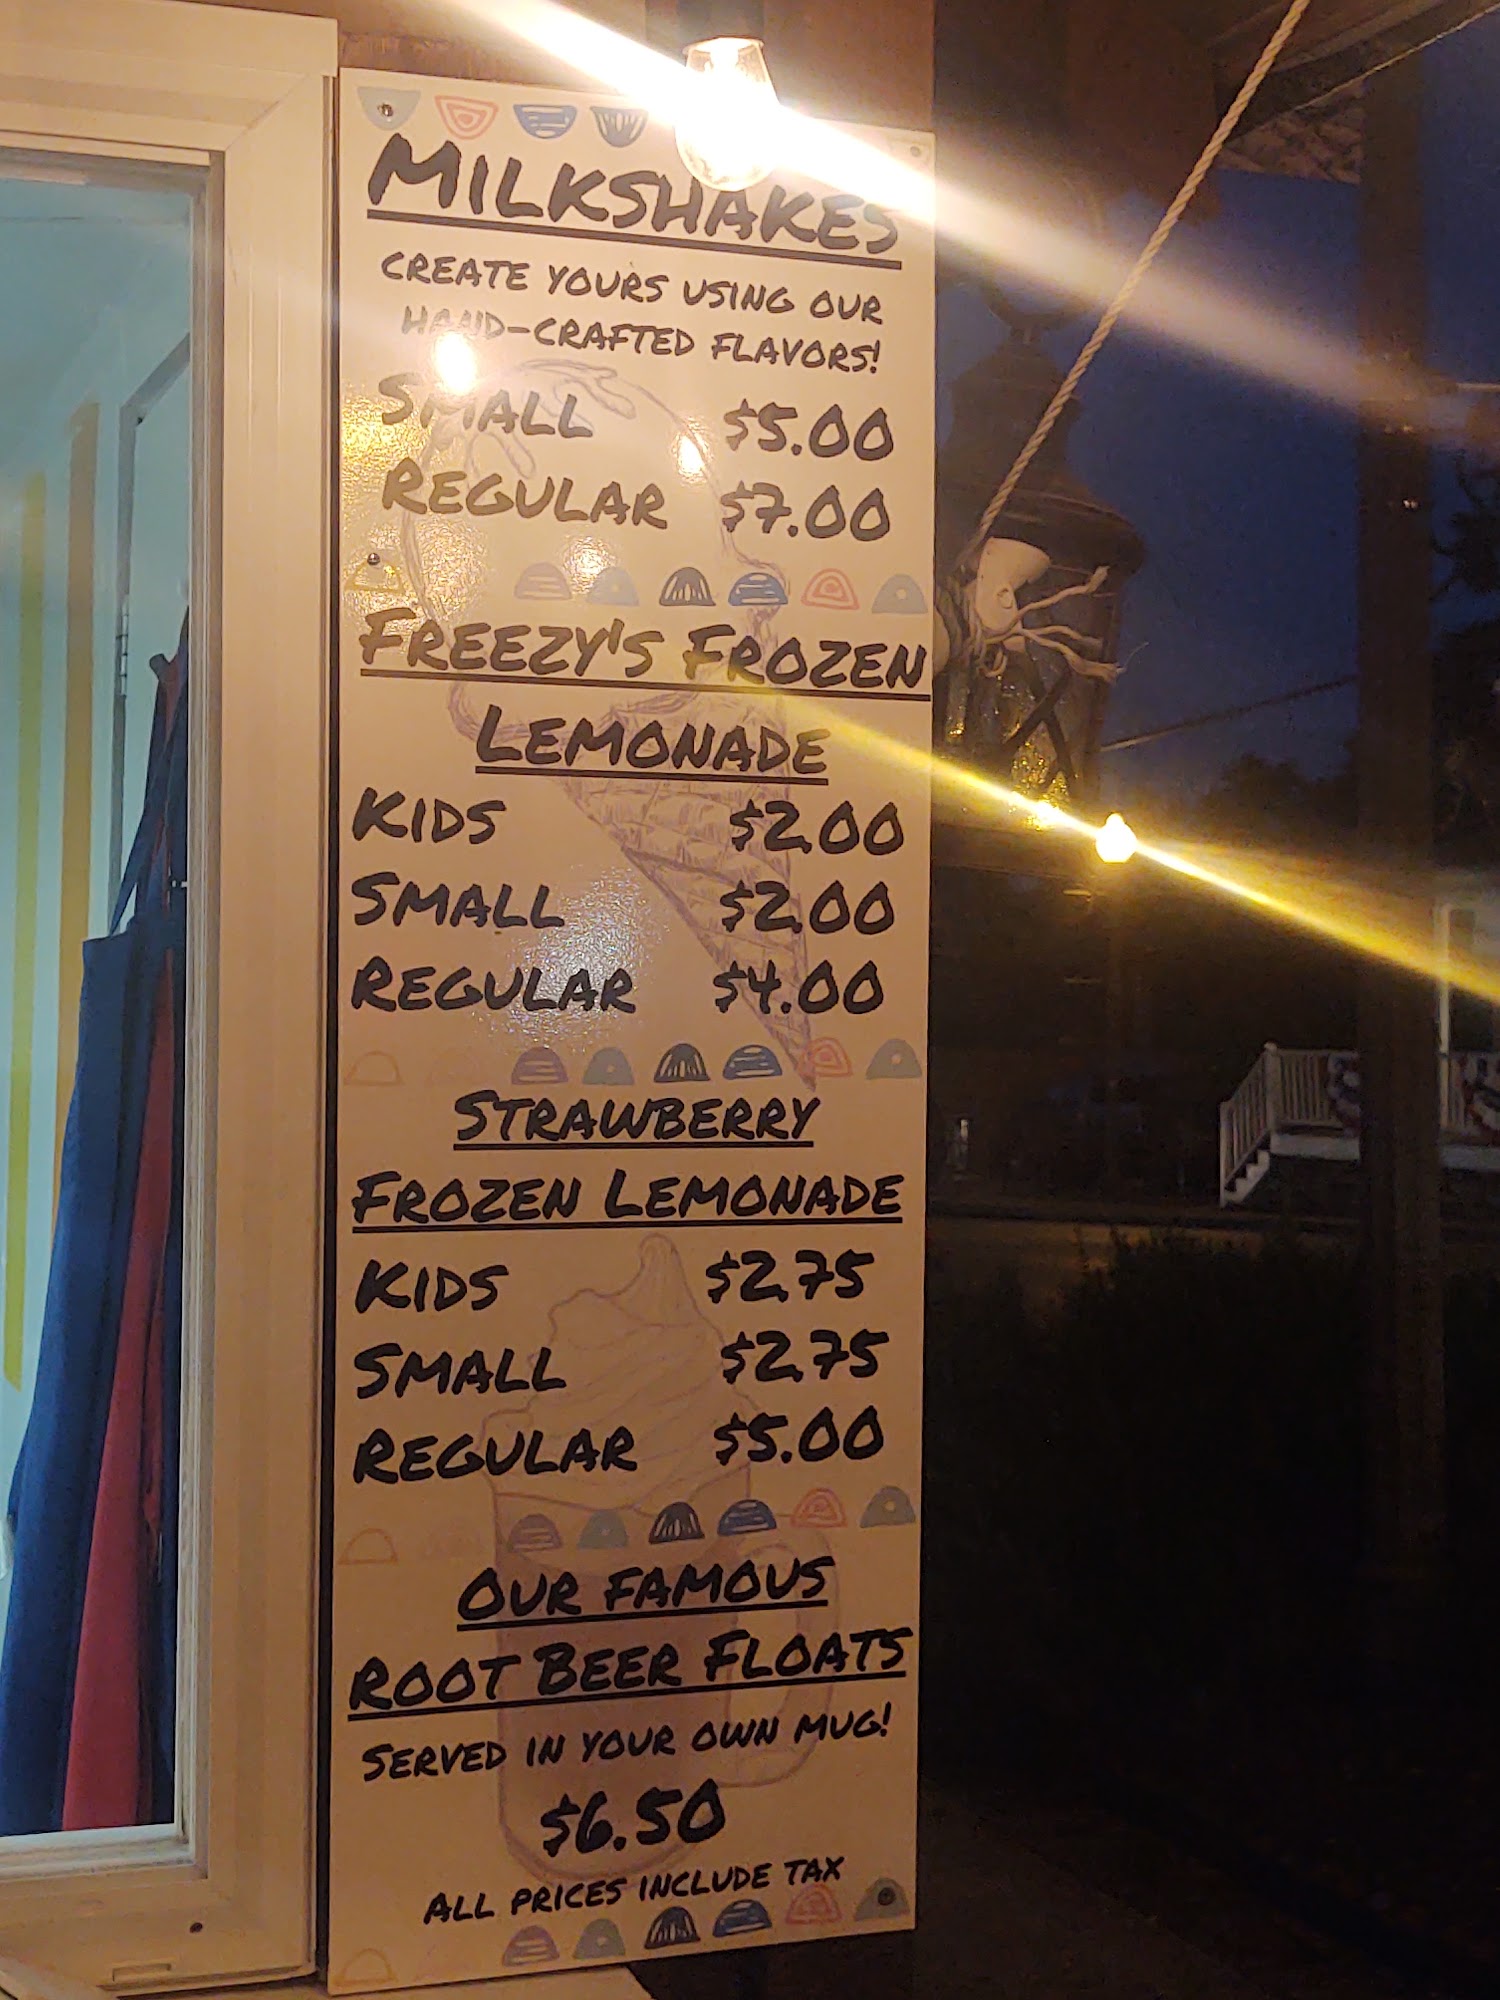 MILKSHAKES
CREATE YOURS USING OUR
HAND-CRAFTED FLAVORS!
SMALL $5.00
REGULAR $7.00
FREEZY'S FROZEN
LEMONADE
KIDS $2.00
SMALL $2.00
REGULAR $4.00
STRAWBERRY
FROZEN LEMONADE
KIDS $2.75
SMALL $2.75
REGULAR $5.00
OUR FAMOUS
ROOT BEER FLOATS
SERVED IN YOUR OWN MUG!
$6.50
ALL PRICES INCLUDE TAX